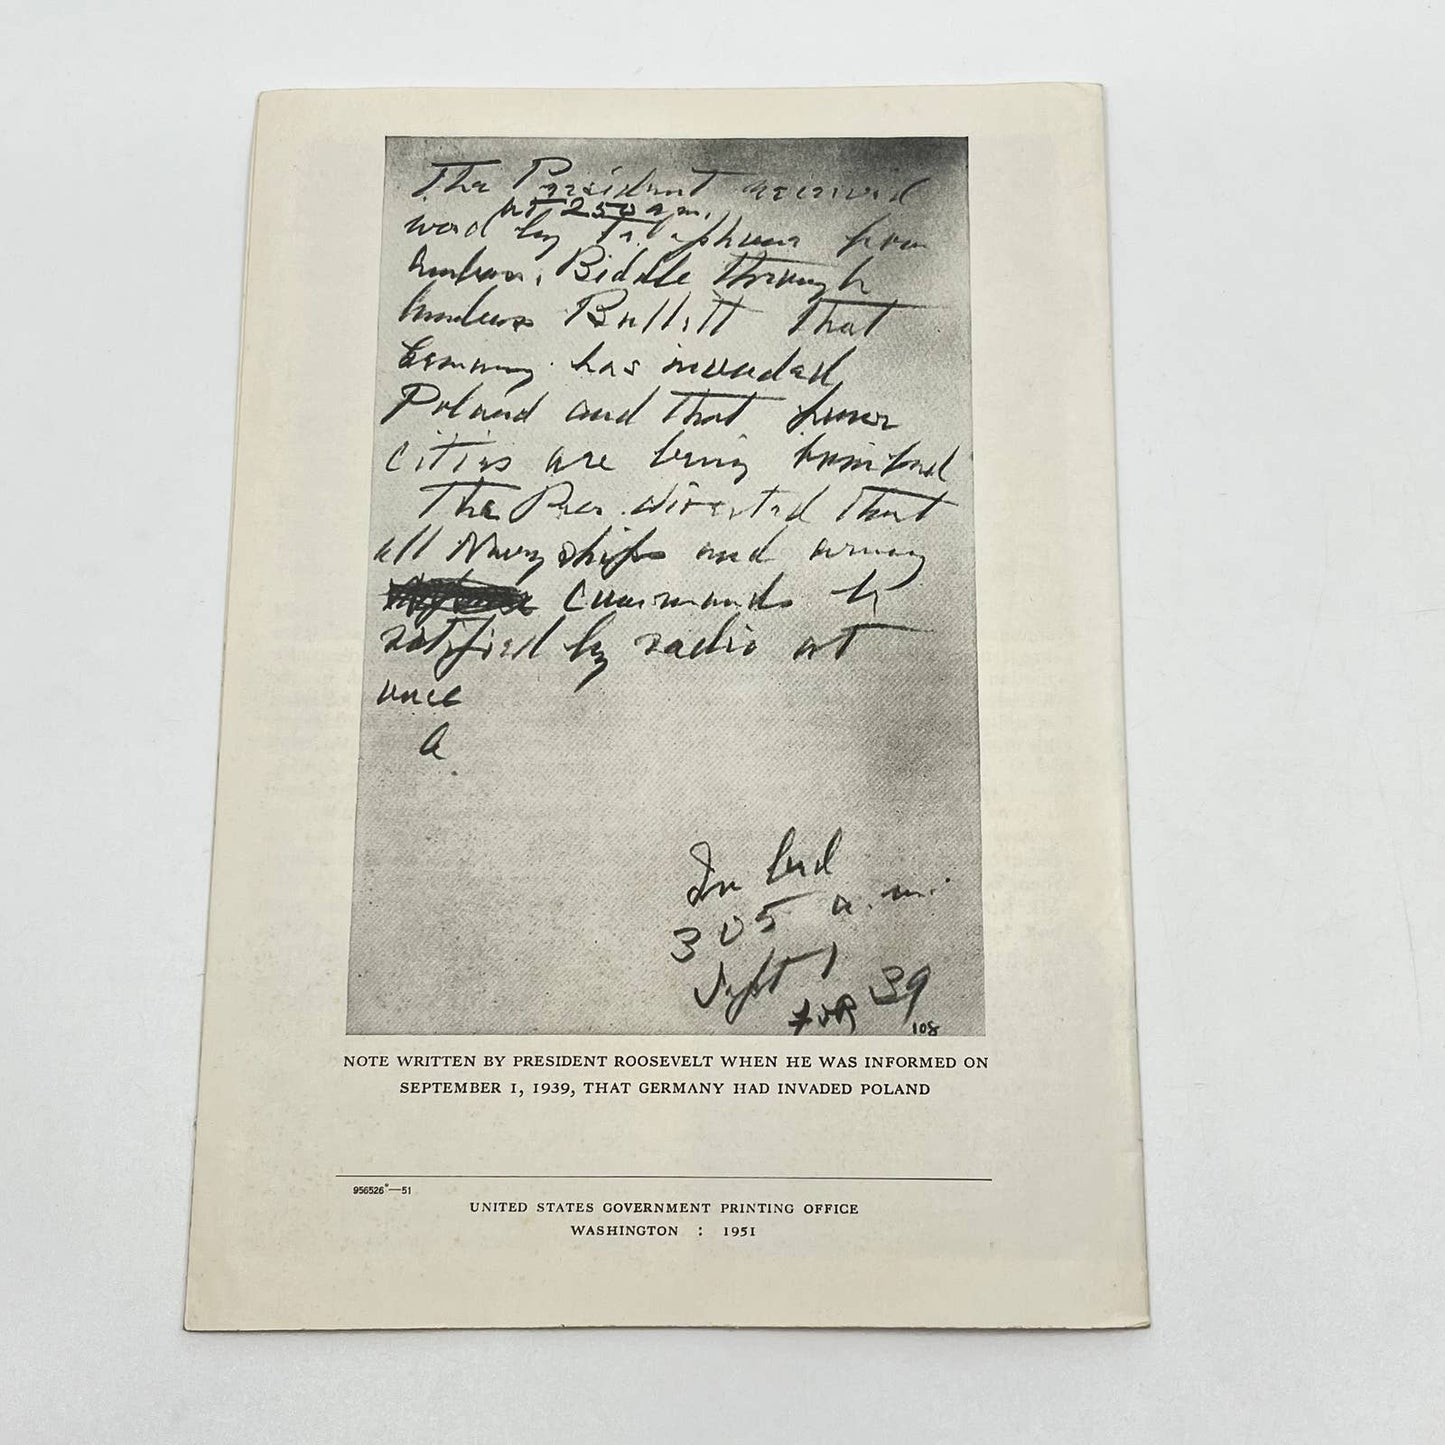 The President received
at 2 50 a.m.
word by Telephone from
Ambass. Biddle through
Ambass Bullitt that
Germany has invaded
Poland and that four
cities are being bombed
The Pres. directed that
all Navy ships and army
commands be
notified by radio at
once
In bed
3 05 a.m.
Sept 1
39
FDR
108
NOTE WRITTEN BY PRESIDENT ROOSEVELT WHEN HE WAS INFORMED ON
SEPTEMBER 1, 1939, THAT GERMANY HAD INVADED POLAND
956526°—51
UNITED STATES GOVERNMENT PRINTING OFFICE
WASHINGTON : 1951